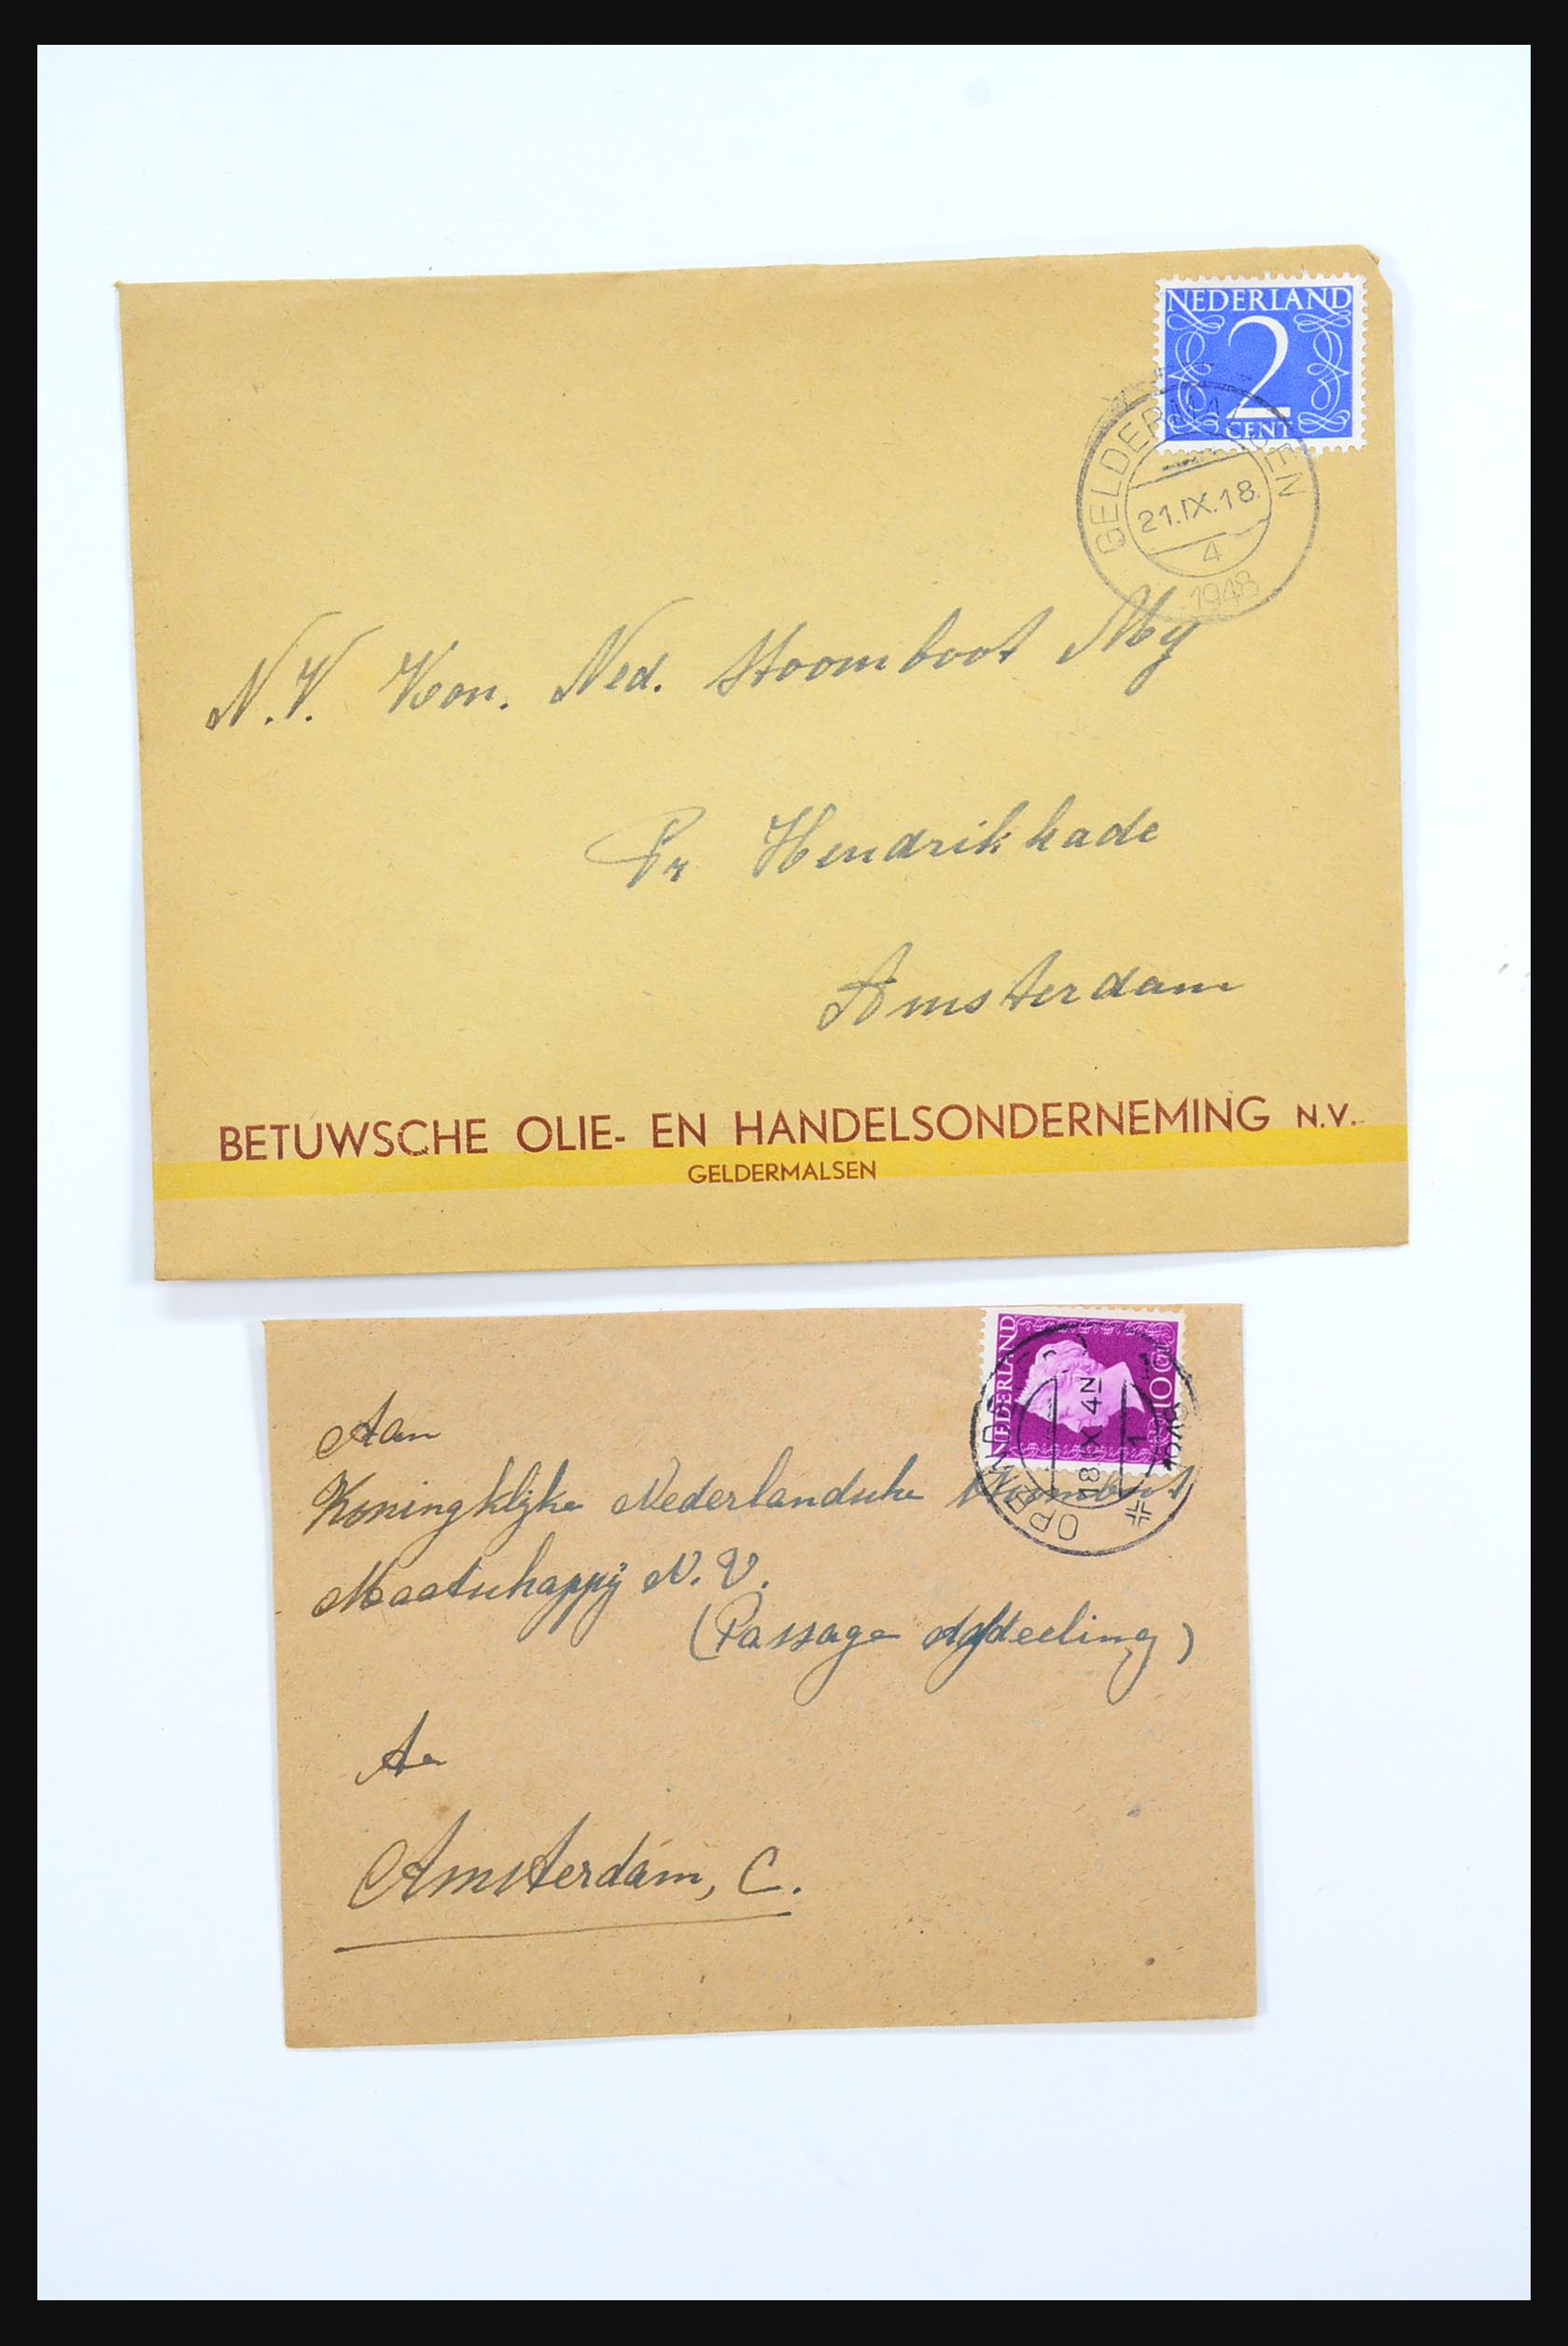 NEDERLAND
2
CENT
GELDERMALSEN
21.IX.18.
4
1948
N.V. Kon. Ned. Stoomboot My
Pr Hendrikkade
Amsterdam
BETUWSCHE OLIE- EN HANDELSONDERNEMING N.V.
GELDERMALSEN
NEDERLAND
10 ct
18 IX 4N
1
1948
Aan
Koningklijke Nederlandsche Stoomboot
Maatschappij N.V.
(Passage Afdeeling)
Te
Amsterdam, C.